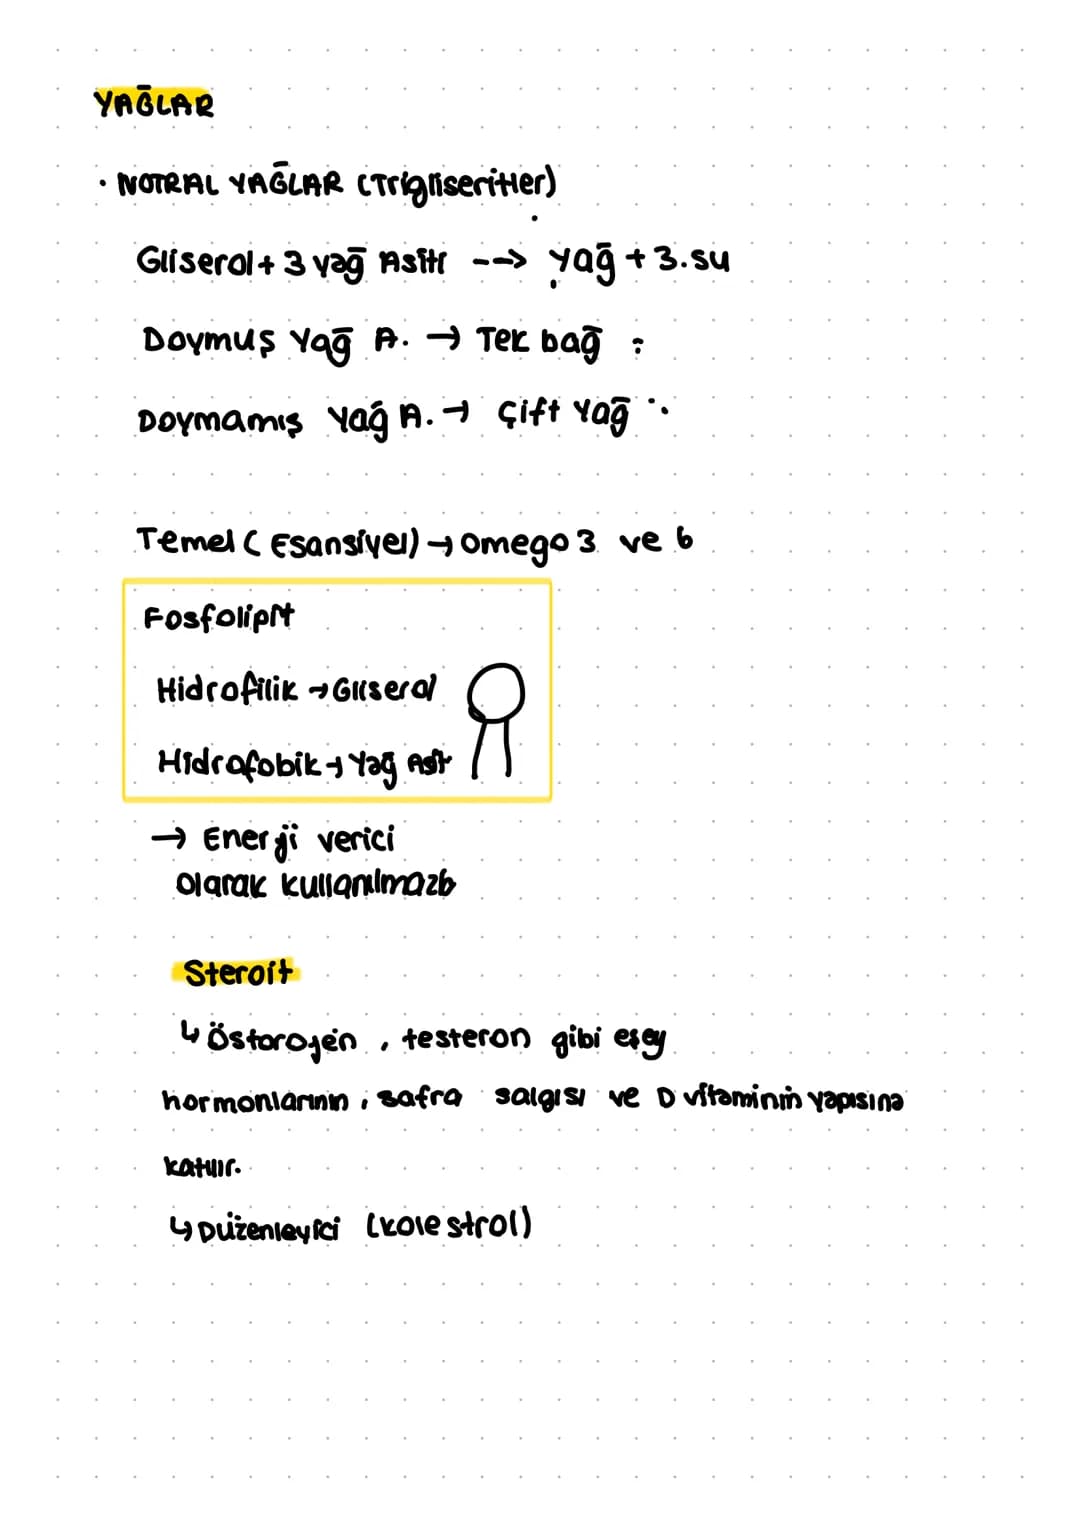 YAĞLAR
· NOTRAL YAĞLAR (Trigliseritler)
Gliserol + 3 yağ Asiti --> yağ + 3.su
Doymuş Yağ A. → Tek bağ :
Doymamış Yağ A. → Çift Yağ
Temel (Esansiyel) → Omego 3 ve 6
Fosfolipit
Hidrofilik → Gliserol
Hidrofobik → Yağ Asit
→ Enerji verici
olarak kullanılmazb
Steroit
↳ Östorojen, testeron gibi eşey
hormonlarının, safra salgısı ve D vitaminin yapısına
katılır.
↳ Düzenleyici (kolestrol)